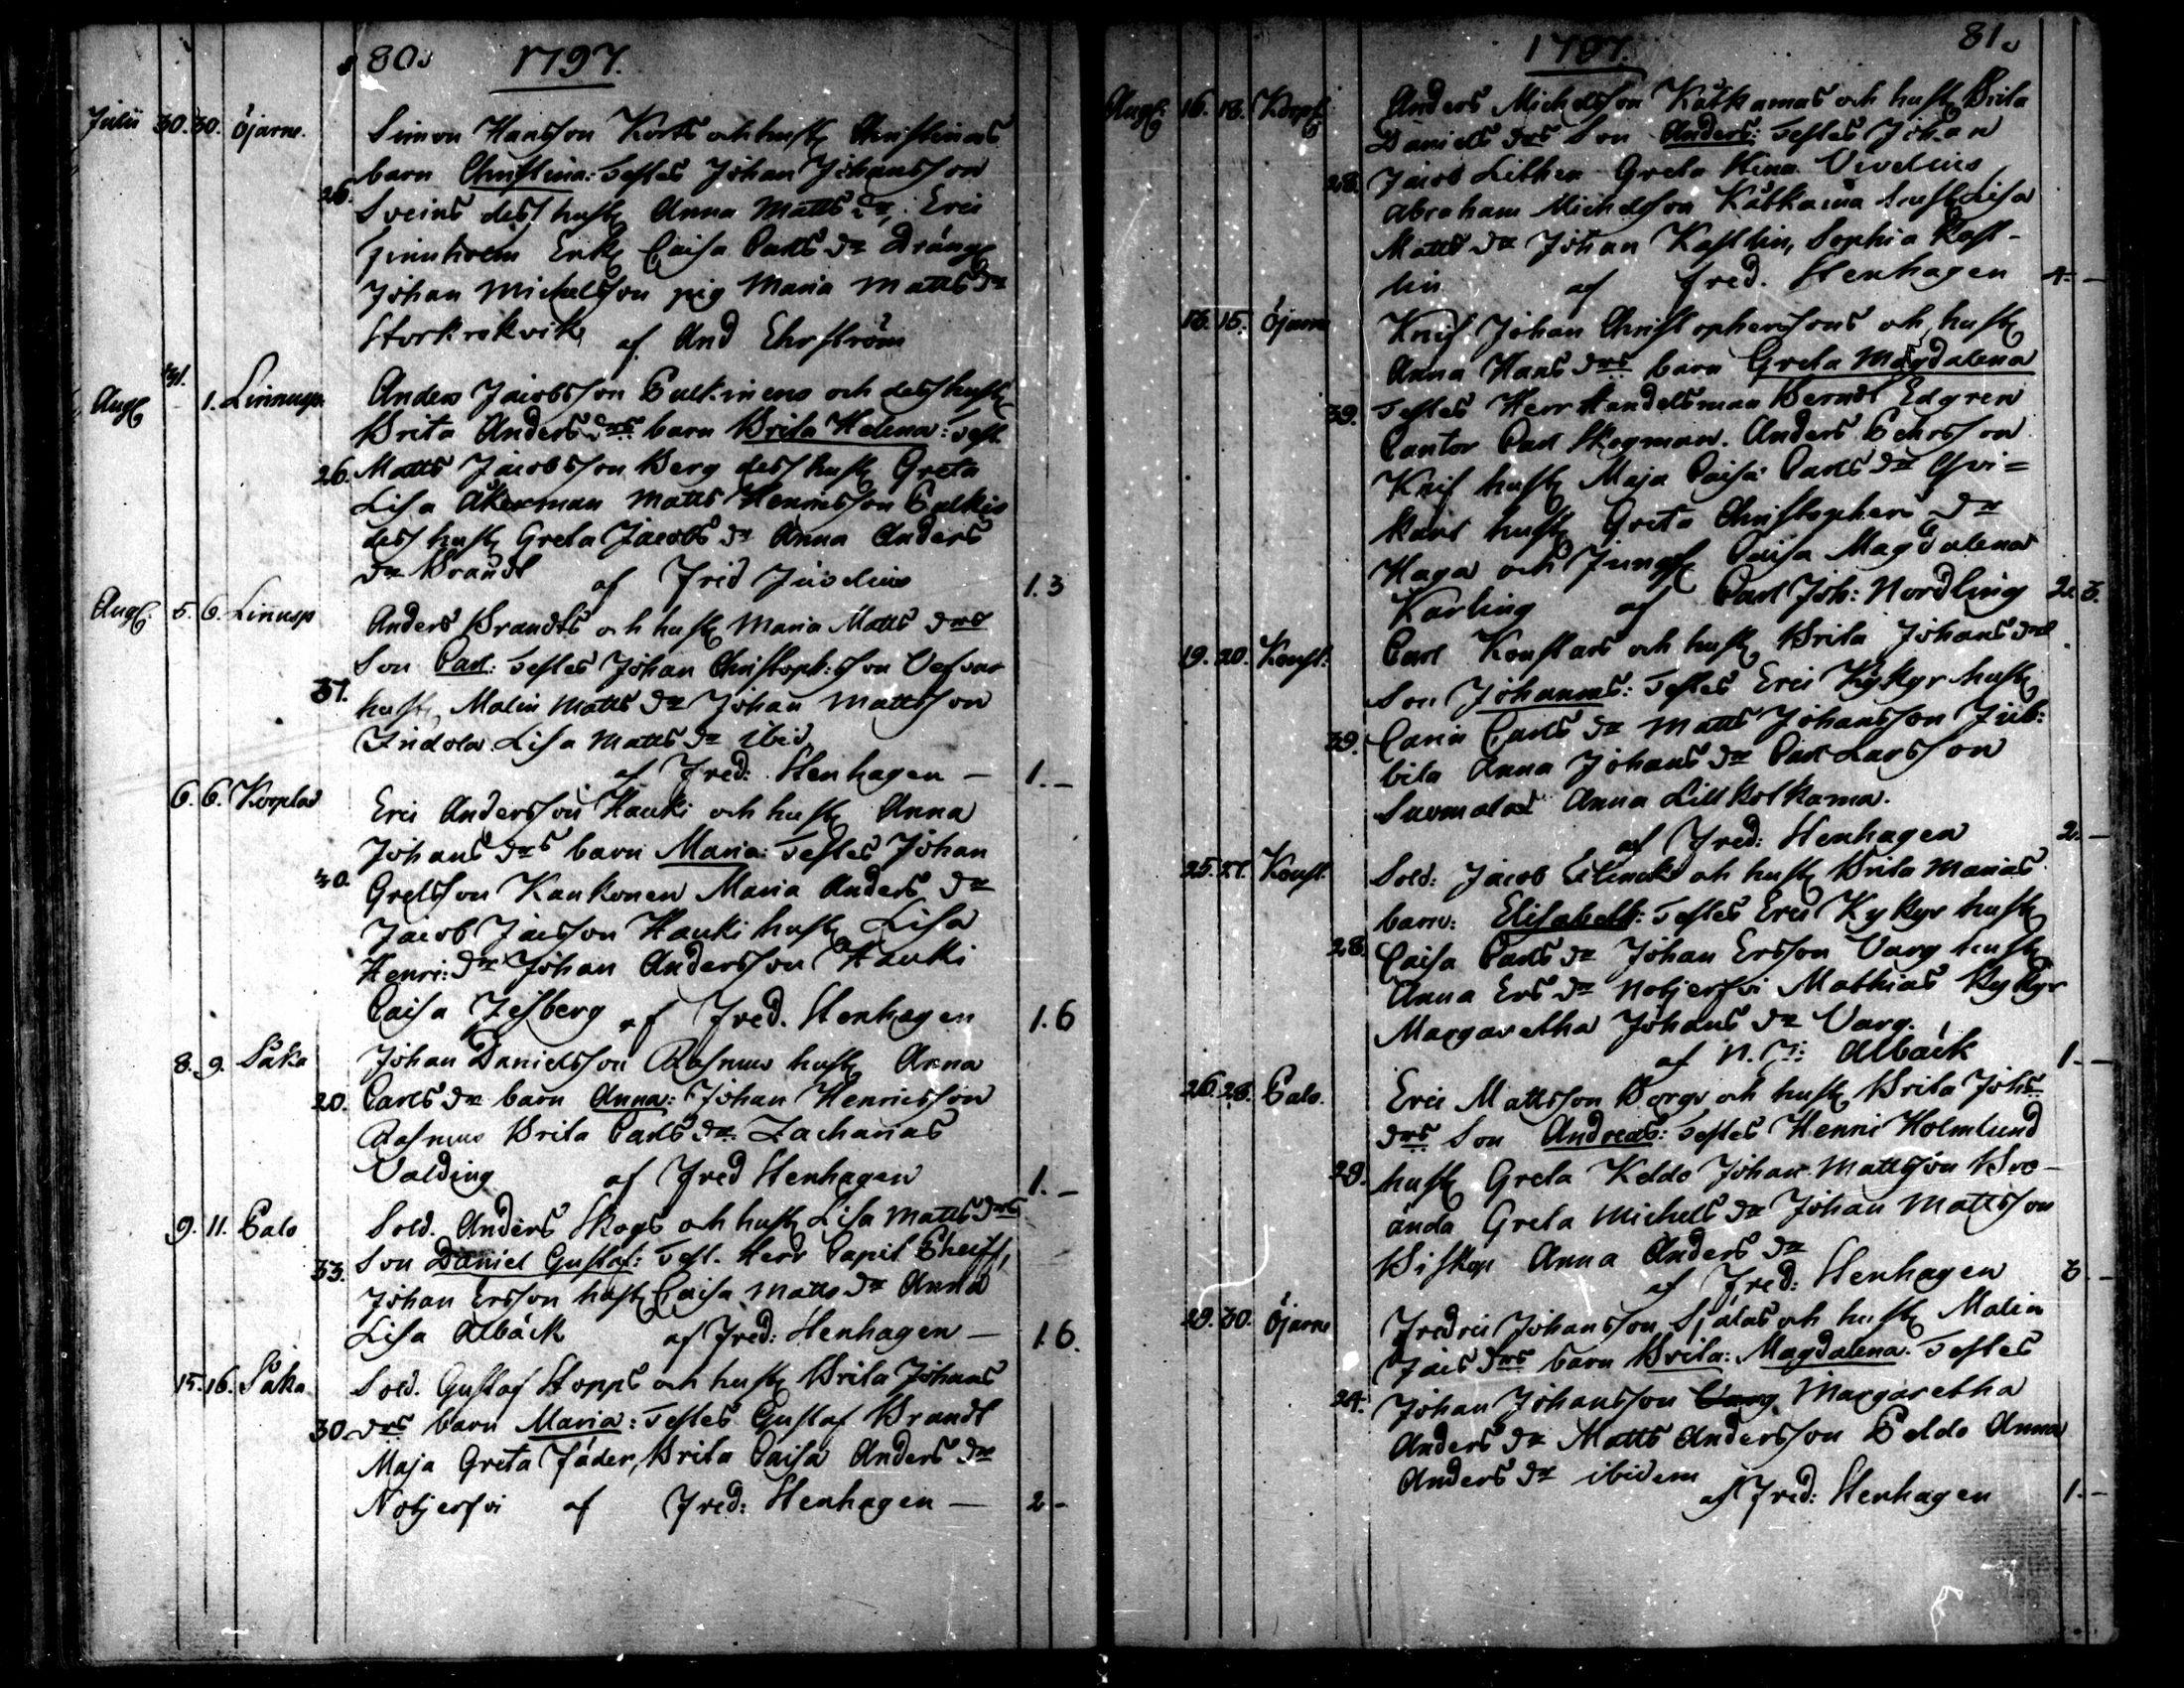 80. 1797.
Julii 30. 30. Öjarne. Simon Hansson Korts och hust: Christinas
barn Christina: Testes Johan Johansson
26. Sveins dess hust: Anna Matts dr, Eric
Enk: Caisa Carls dr Dräng
Johan Michelsson pig Maria Matts dr
af And Ehrström
Aug: 31. 1. Linnusp Anders Jacobsson Palkinens och dess hust:
Brita Anders drs barn Brita Helena: Test.
26. Matts Jacobsson Berg dess hust: Greta
Lisa Åkerman Matts Henricsson Palkis
dess hust: Greta Jacobs dr Anna Anders
dr Brandt af Fred Juvelius 1. 3
Aug: 5. 6. Linusp Anders Brandts och hust: Maria Matts drs
Son Carl: Testes Johan Christoph: son
37. hust: Malin Matts dr Johan Mattsson
Indola Lisa Matts dr ibid
af Fred: Stenhagen — 1. —
6. 6. Korplax Eric Andersson Hauki och hust: Anna
Johans drs barn Maria: Testes Johan
40. Grelsson Kaukonen Maria Anders dr
Jacob Jacsson Hauki hust: Lisa
Henri: dr Johan Andersson Hauki
Caisa af Fred. Stenhagen 1. 6
8. 9. Såka Johan Danielsson Rasmus hust: Anna
20. Carls dr barn Anna: Johan Henricsson
Rasmus Brita Carls dr Zacharias
Valding af Fred Stenhagen 1. —
9. 11. Palo Sold. Anders Skogs och hust: Lisa Matts drs
33. Son Daniel Gustaf: Test. Herr Capit
Johan Ersson hust: Caisa Matts dr Anna
Lisa Albäck af Fred: Stenhagen — 1. 6.
15. 16. Såka Sold. Gustaf Stopps och hust: Brita Johans
30. drs barn Maria: Testes Gustaf Brandt
Maja Greta Fader, Brita Caisa Anders dr
Notjersvi af Fred: Stenhagen — 2 —
1797. 81.
Aug: 16. 18. Korpf. Anders Michelsson Kåtkamas och hust: Brita
Daniels drs Son Anders: Testes Johan
28. Jacob Lithen Greta Stina
Abraham Michelsson Kåtkama hust: Lisa
Matts dr Johan Kastlin, Sophia Kast-
lin af Fred. Stenhagen 4. —
15. Öjarne Knif Johan Christophersons och hust:
Anna Hans drs barn Greta Magdalena
39. Testes Herr Handelsman Berndt Edgren
Cantor Carl Skogman. Anders Pehrsson
Knif hust: Maja Caisa Carls dr
hust: Greta Christophers dr
Haga och Jungf: Caisa Magdalena
Karling af Carl Joh: Nordling 2. 3.
19. 20. Konst. Carl Konstars och hust: Brita Johans drs
Son Johannes: Testes Eric Kykyr hust:
39. Carin Carls dr Matts Johansson
Anna Johans dr Carl Larsson
Anna Lillkotkama.
af Fred: Stenhagen 2. —
25. 27. Konst. Sold: Jacob och hust: Brita Marias
barn: Elisabeth: Testes Eric Kykyr hust:
28. Caisa Carls dr Johan Ersson Varg hust:
Anna Ers dr Notjersvi Mathias Kykyr
Margaretha Johans dr Varg.
af Albäck 1. —
26. 28. Palo. Eric Mattsson Borgs och hust: Brita Johs
drs Son Andreas: Testes Henric Holmlund
29. hust: Greta Keldo Johan Mattsson
Greta Michels dr Johan Mattsson
Biskop Anna Anders dr
af Fred: Stenhagen 3. —
29. 30. Öjarne Fredric Johansson Sjålas och hust: Malin
Jacs drs barn Brita: Magdalena. Testes
24. Johan Johansson Margaretha
Anders dr Matts Andersson Peldo Anna
Anders dr ibidem
af Fred: Stenhagen 1. —